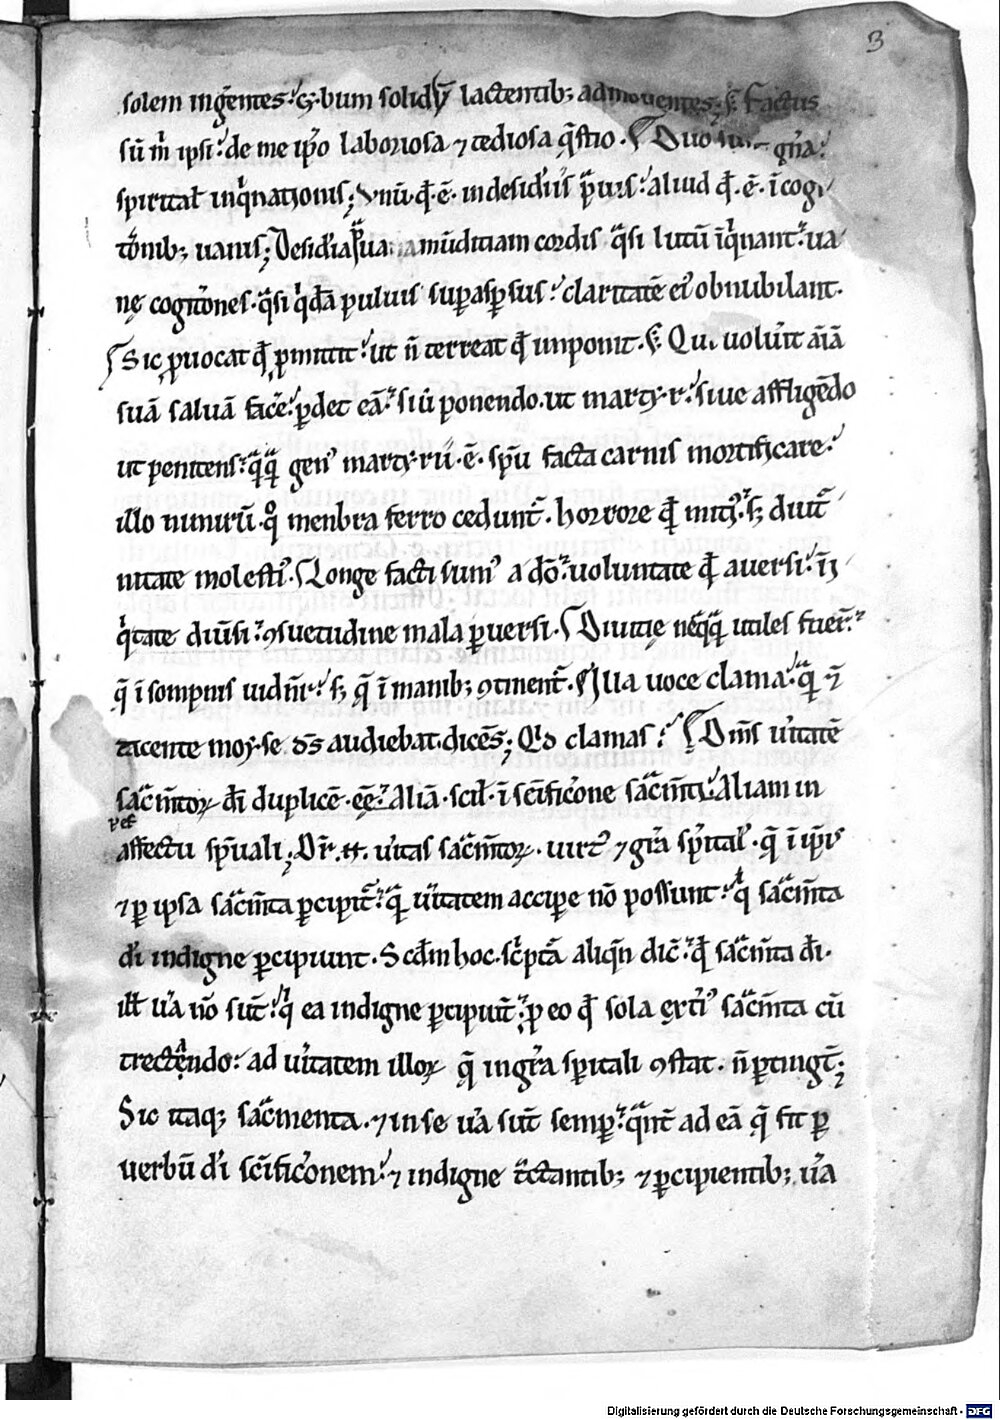 3
solem ingẽntes. bum solidũ lactentib; admouentes; Factus
sũ m̃ ipsi. de me ip̃o laboriosa ⁊ tediosa q̃stio. Duo
spirital inq̃nationis; vnũ q̃d .ẽ. in desid̾iis p̃uis. aliud q̃d .ẽ. ĩ cogi
tõnib; uanis; Desid̾ia mũditiam cordis q̃si lutũ ĩq̃nant. ua
nę cogitõnes. q̃si q̃dã puluis suꝑasꝑsus. claritatẽ ei᾽ obnubilant.
Sic ꝓuocat q̃d ꝑmittit. ut ñ terreat q̃d imponit. Qui uolũit aĩã
suã saluã face̾. ꝑdet eã. siũ ponendo. ut martyr. siue affligẽdo
ut penitens. q̃q̃ gen᾽ martyrii .ẽ. sp̃u facta carnis mortificare.
illo nimirũ. q̊ menbra ferro cedunt̃. horrore q̃d miti᾽. s; diut̾
nitate molesti᾽. Longe facti sum᾽ a dõ. uoluntate q̃d auersi. ĩ
q̃tate diũsi. ꝯsuetudine mala ꝑuersi. Diuitię neq̃q̃ utiles fuer̃.
q̃ ĩ sompnis uidñr. s; q̃ ĩ manib; ꝯtinent̃. Illa uoce clama. q̃ ĩ
tacente moyse d̃s audiebat. dicẽs; Q̊d clamas. Dñis u̾itatẽ
sac̃m̃toꝝ d̃i duplicẽ .eẽ. Aliã. scil. ĩ sc̃ificõne sac̃m̃ti. Aliam in
uel
affectu sp̃uali; u̾itas sac̃m̃toꝝ. uirt᾽ ⁊ gr̃a sp̾ital᾽. q̃ ĩ ip̃is
⁊ ꝑ ipsa sac̃m̃ta ꝑcipit̃. q̃ u̾itatem accipe nõ possunt. q̃ sac̃m̃ta
d̃i indigne ꝑcipiunt. Scd̃m hoc. sc̾ptã aliq̃n dic̃. q̃d sac̃m̃ta d̃i.
ill u̾a nõ sũt. q̃ ea indigne ꝑcipiũt. ꝓ eo q̃d sola ext̾i᾽ sac̃m̃ta cũ
trectãndo. ad u̾itatem illoꝝ q̃ in gr̃a sp̾itali ꝯstat. ñ ꝑtingt̃;
Sic itaq; sac̃menta. ⁊ in se u̾a sũt semꝑ. q̃nt̃ ad eã q̃ fit ꝑ
uerbũ d̃i sc̃ificõnem. ⁊ indigne t̾ctantib; ⁊ ꝑcipientib; u̾a
Digitalisierung gefördert durch die Deutsche Forschungsgemeinschaft - DFG